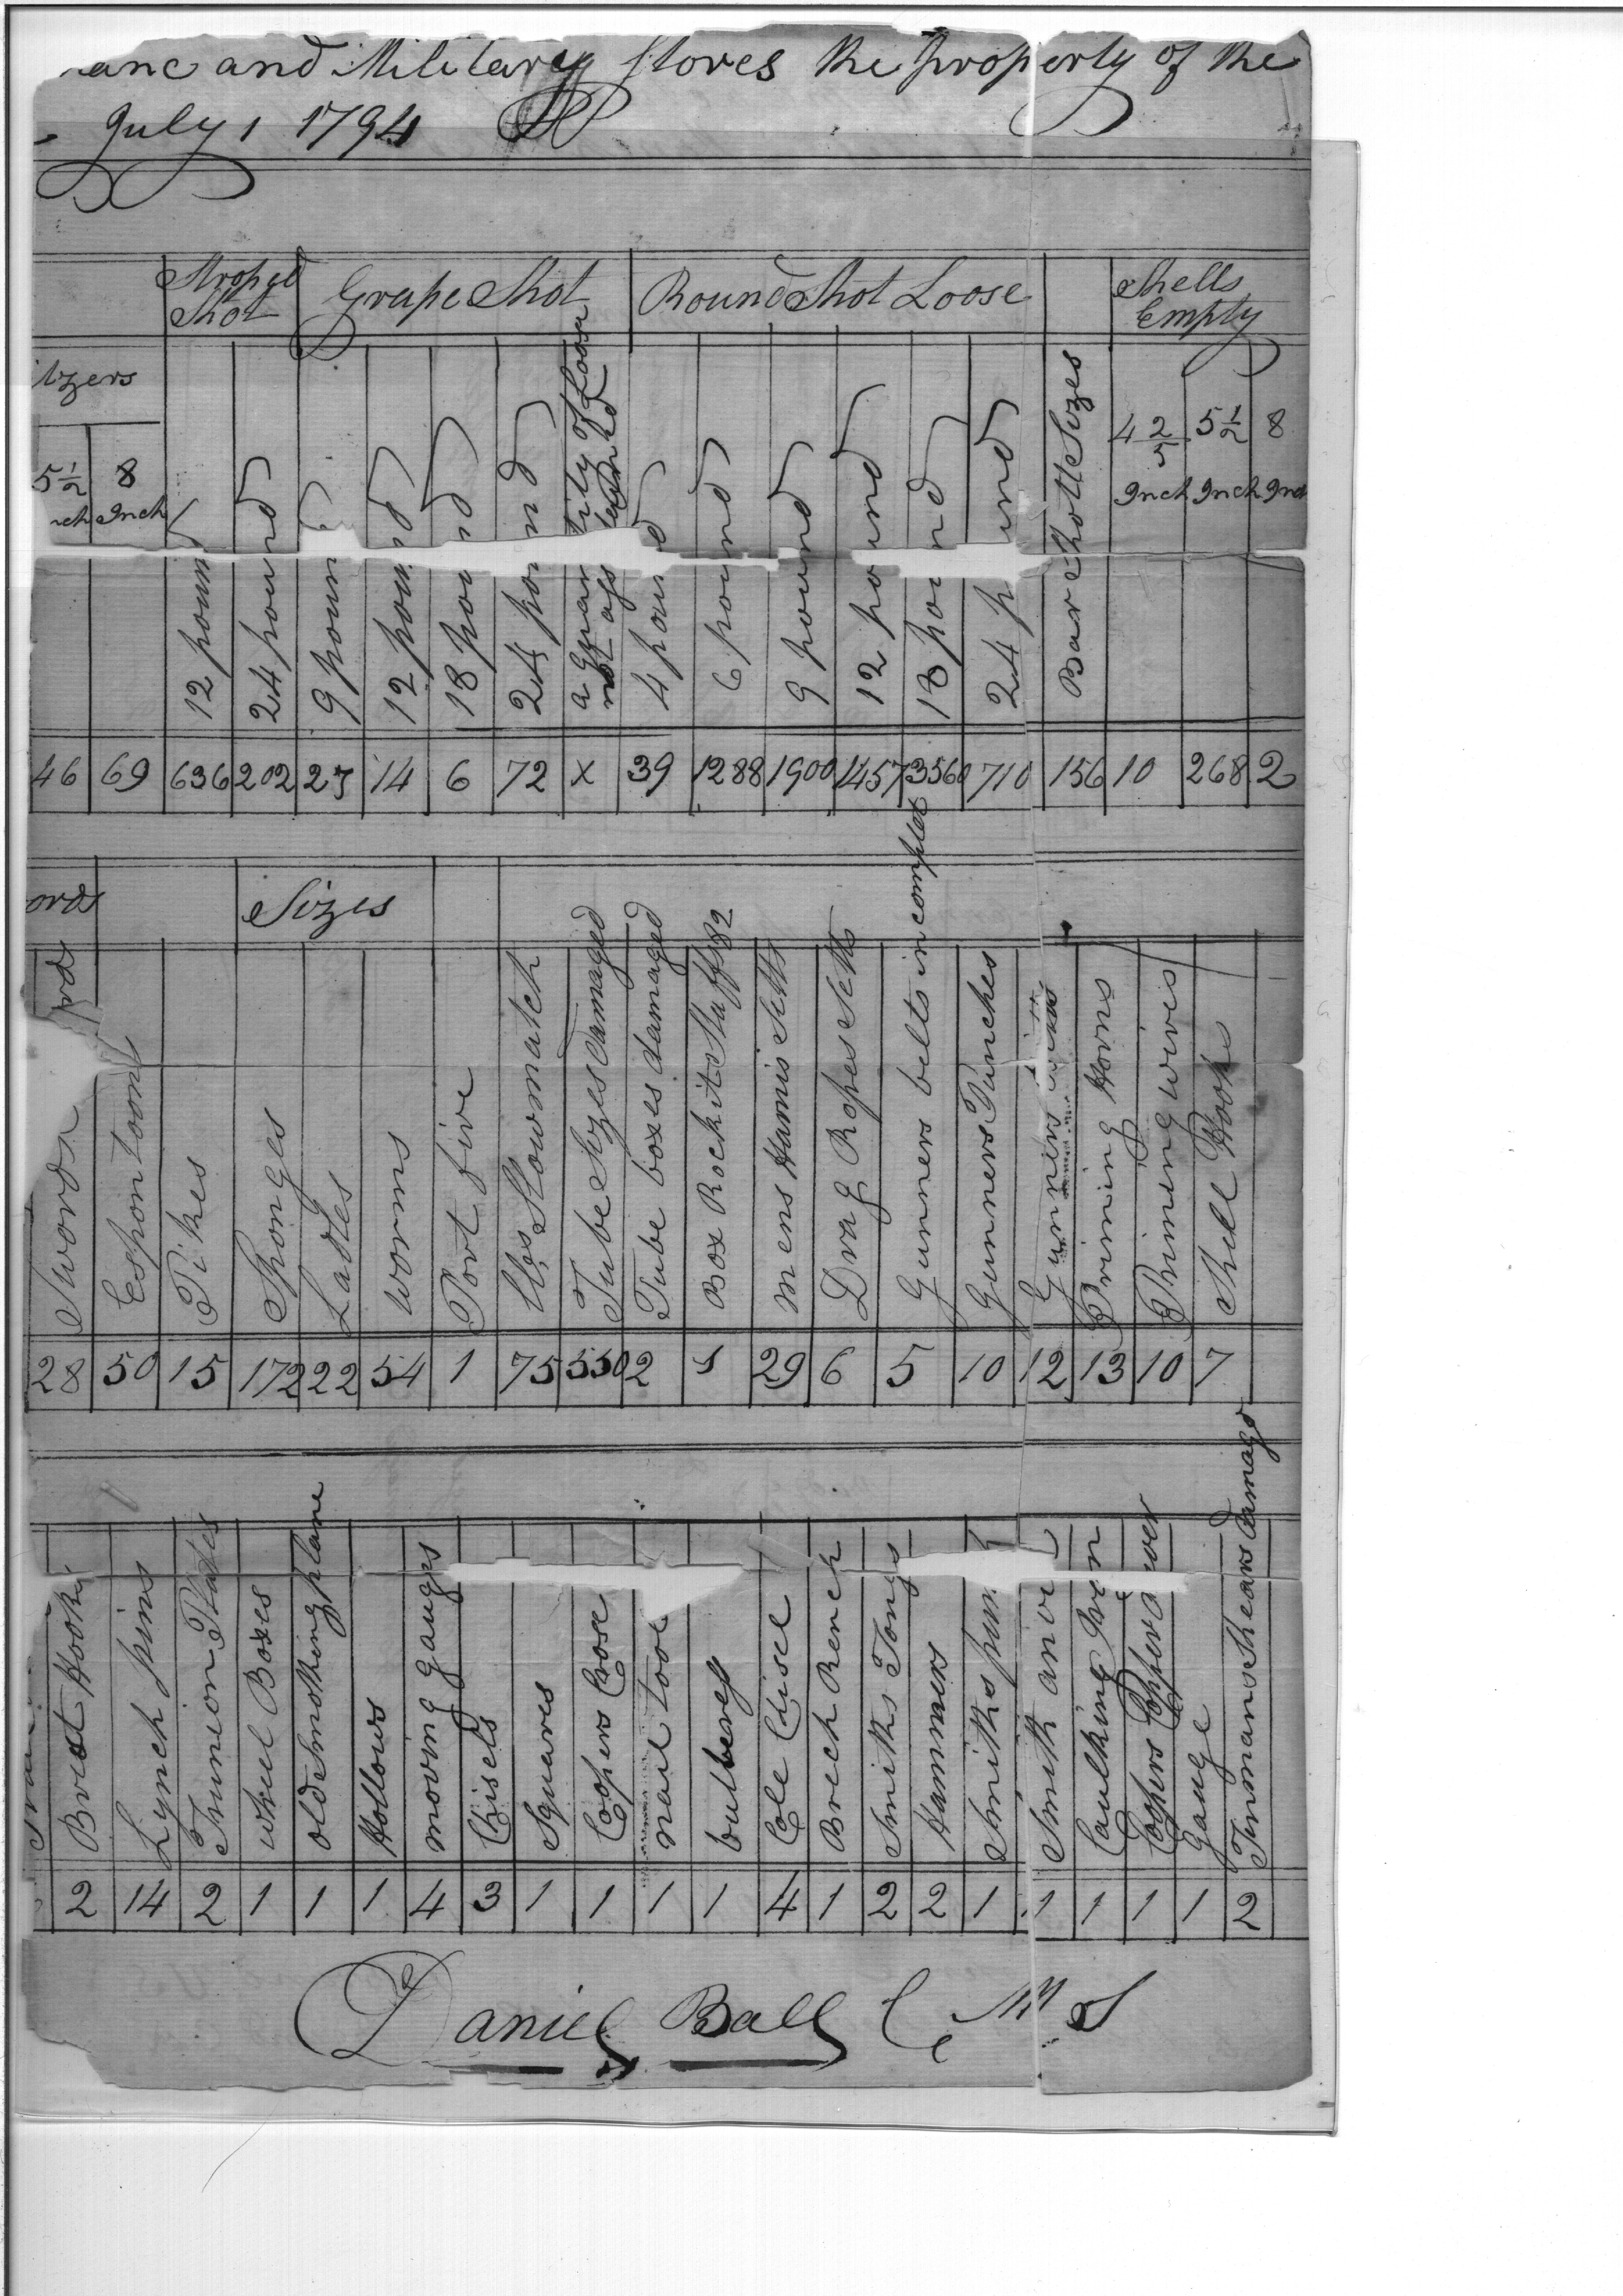 and Military Stores the property of the
July 1 1794
Stroped Shot
Grape Shot
Round Shot Loose
Shells Empty
5½ Inch
8 Inch
12 pound
24 pound
9 pound
12 pound
18 pound
24 pound
a quantity of Loose
not
4 pound
6 pound
9 pound
12 pound
18 pound
24 pound
Bar Shott Sizes
4 2/5 Inch
5½ Inch
8 Inch
46 69 636 202 27 14 6 72 x 39 1288 1900 1457 3560 710 156 10 268 2
Sizes
Swords
Espontoons
Pikes
Sponges
Ladles
Worms
Port fire
lbs Slowmatch
Tube Sizes damaged
Tube boxes damaged
Box Rockit Staffs 82
mens Harnis Setts
Drag Ropes Setts
Gunners belts in complet
Gunners Punches
Gunners
Priming Horns
Priming wires
Shell Hooks
28 50 15 172 22 54 1 75 550 2 1 29 6 5 10 12 13 10 7
Brest Hooks
Lynch pins
Trunion Plates
wheel Boxes
old Smothing plane
Hollows
moving gauges
Chisels
Squares
Coopers Crose
nail tool
Cole Chisel
Smiths Tongs
Hammers
Smiths
Smith
Caulking Iron
Coopers
Gauge
Tinmans Shears Damage
2 14 2 1 1 1 4 3 1 1 1 1 4 1 2 2 1 1 1 1 1 2
Daniel Ball C M S